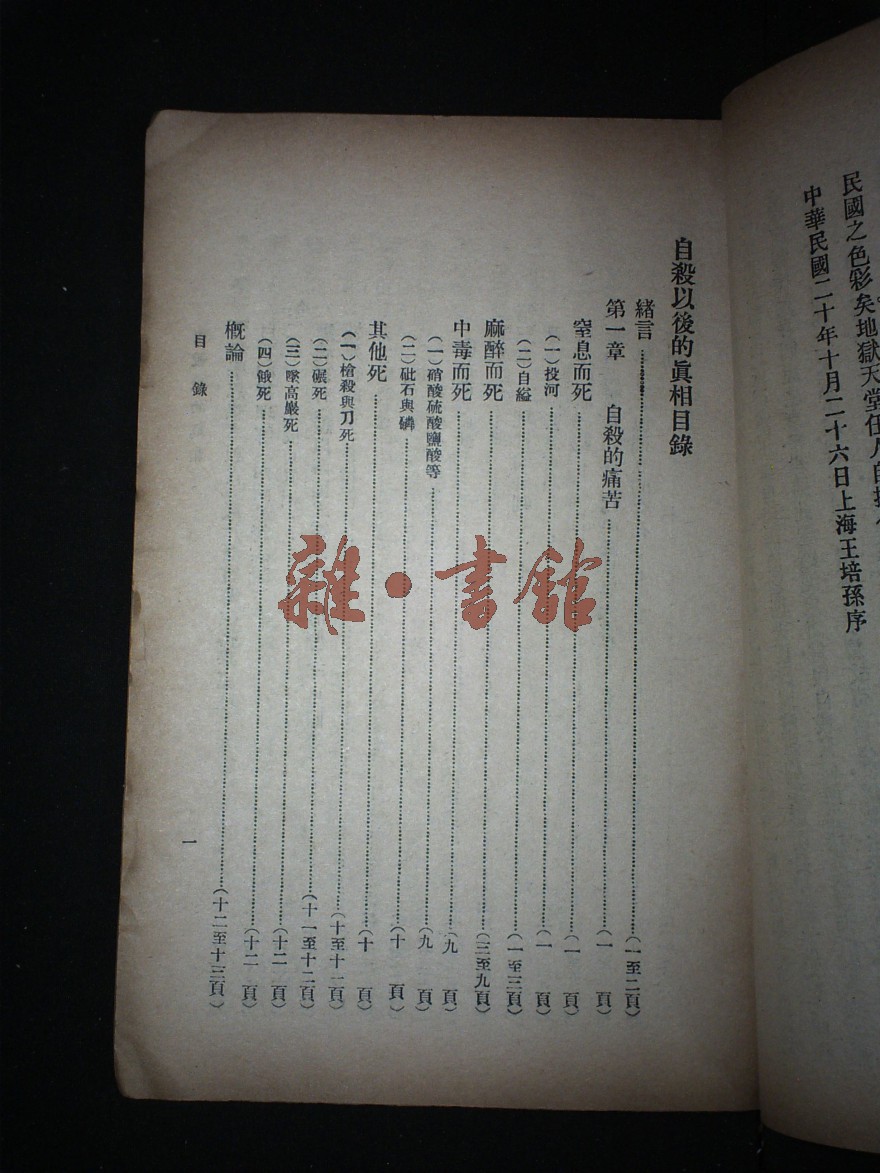 民國之色彩矣地獄天堂任人自擇
中華民國二十年十月二十六日上海王培孫序
自殺以後的眞相目錄
緒言……(一至二頁)
第一章 自殺的痛苦……(一 頁)
窒息而死……(一 頁)
(一)投河……(一 頁)
(二)自縊……(一至三頁)
麻醉而死……(三至九頁)
中毒而死……(九 頁)
(一)硝酸硫酸鹽酸等……(九 頁)
(二)砒石與磷……(十 頁)
其他死……(十 頁)
(一)槍殺與刀死……(十至十一頁)
(二)碾死……(十一至十二頁)
(三)墜高巖死……(十二 頁)
(四)餓死……(十二 頁)
概論……(十二至十三頁)
目錄
一
雜·書館